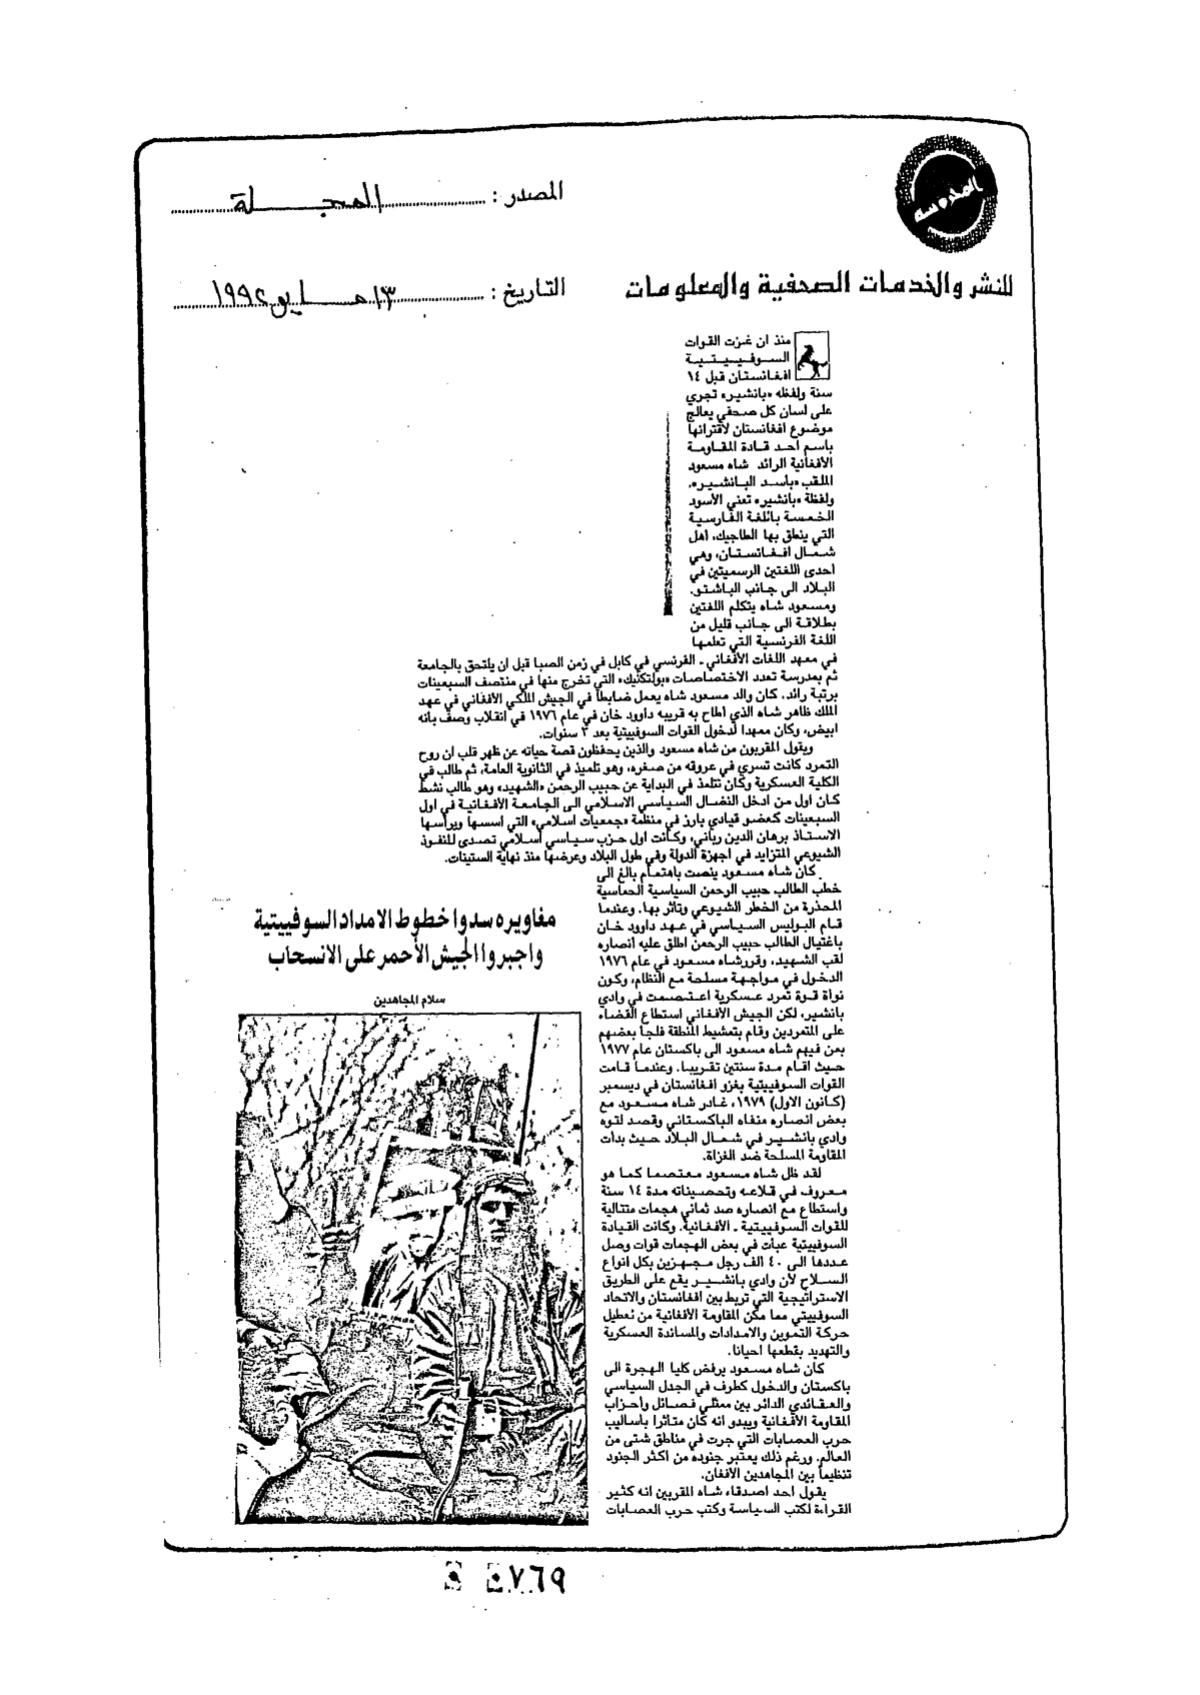 المصدر : المجلة
المدرسة
للنشر والخدمات الصحفية والمعلومات
التاريخ : ١٣ مايو ١٩٩٢
منذ ان غزت القوات
السوفييتية
افغانستان قبل ١٤
سنة ولفظه «بانشير» تجري
على لسان كل صحفي يعالج
موضوع افغانستان لاقترانها
باسم احد قادة المقاومة
الأفغانية الرائد شاه مسعود
الملقب «بأسد البانشير».
ولفظة «بانشير» تعني الأسود
الخمسة باللغة الفارسية
التي ينطق بها الطاجيك، اهل
شمال افغانستان، وهي
احدى اللغتين الرسميتين في
البلاد الى جانب الباشتو.
ومسعود شاه يتكلم اللغتين
بطلاقة الى جانب قليل من
اللغة الفرنسية التي تعلمها
في معهد اللغات الأفغاني - الفرنسي في كابل في زمن الصبا قبل ان يلتحق بالجامعة
ثم بمدرسة تعدد الاختصاصات «بولتكنيك» التي تخرج منها في منتصف السبعينات
برتبة رائد. كان والد مسعود شاه يعمل ضابطا في الجيش الملكي الأفغاني في عهد
الملك ظاهر شاه الذي اطاح به قريبه داوود خان في عام ١٩٧٦ في انقلاب وصف بانه
ابيض، وكان ممهدا لدخول القوات السوفييتية بعد ٣ سنوات.
ويقول المقربون من شاه مسعود والذين يحفظون قصة حياته عن ظهر قلب ان روح
التمرد كانت تسري في عروقه من صغره، وهو تلميذ في الثانوية العامة، ثم طالب في
الكلية العسكرية وكان تتلمذ في البداية عن حبيب الرحمن «الشهيد» وهو طالب نشط
كان اول من ادخل النضال السياسي الاسلامي الى الجامعة الأفغانية في اول
السبعينات كعضو قيادي بارز في منظمة «جمعيات اسلامي» التي اسسها ويرأسها
الاستاذ برهان الدين رباني، وكانت اول حزب سياسي اسلامي تصدى للنفوذ
الشيوعي المتزايد في اجهزة الدولة وفي طول البلاد وعرضها منذ نهاية الستينات.
كان شاه مسعود ينصت باهتمام بالغ الى
خطب الطالب حبيب الرحمن السياسية الحماسية
المحذرة من الخطر الشيوعي وتأثر بها. وعندما
قام البوليس السياسي في عهد داوود خان
باغتيال الطالب حبيب الرحمن اطلق عليه انصاره
لقب الشهيد، وقرر شاه مسعود في عام ١٩٧٦
الدخول في مواجهة مسلحة مع النظام، وكون
نواة قوة تمرد عسكرية اعتصمت في وادي
بانشير، لكن الجيش الأفغاني استطاع القضاء
على المتمردين وقام بتمشيط المنطقة فلجأ بعضهم
بمن فيهم شاه مسعود الى باكستان عام ١٩٧٧
حيث اقام مدة سنتين تقريبا. وعندما قامت
القوات السوفييتية بغزو افغانستان في ديسمبر
(كانون الاول) ١٩٧٩، غادر شاه مسعود مع
بعض انصاره منفاه الباكستاني وقصد لتوه
وادي بانشير في شمال البلاد حيث بدأت
المقاومة المسلحة ضد الغزاة.
لقد ظل شاه مسعود معتصما كما هو
معروف في قلاعه وتحصيناته مدة ١٤ سنة
واستطاع مع انصاره صد ثماني هجمات متتالية
للقوات السوفييتية - الأفغانية. وكانت القيادة
السوفييتية عبات في بعض الهجمات قوات وصل
عددها الى ٤٠ الف رجل مجهزين بكل انواع
السلاح لأن وادي بانشير يقع على الطريق
الاستراتيجية التي تربط بين افغانستان والاتحاد
السوفييتي مما مكن المقاومة الأفغانية من تعطيل
حركة التموين والامدادات والمساندة العسكرية
والتهديد بقطعها احيانا.
كان شاه مسعود يرفض كليا الهجرة الى
باكستان والدخول كطرف في الجدل السياسي
والعقائدي الدائر بين ممثلي فصائل وأحزاب
المقاومة الأفغانية ويبدو انه كان متأثرا بأساليب
حرب العصابات التي جرت في مناطق شتى من
العالم. ورغم ذلك يعتبر جنوده من اكثر الجنود
تنظيماً بين المجاهدين الافغان.
يقول احد اصدقاء شاه المقربين انه كثير
القراءة لكتب السياسة وكتب حرب العصابات
مغاويره سدوا خطوط الامداد السوفييتية
واجبروا الجيش الأحمر على الانسحاب
سلام المجاهدين
٧٦٩